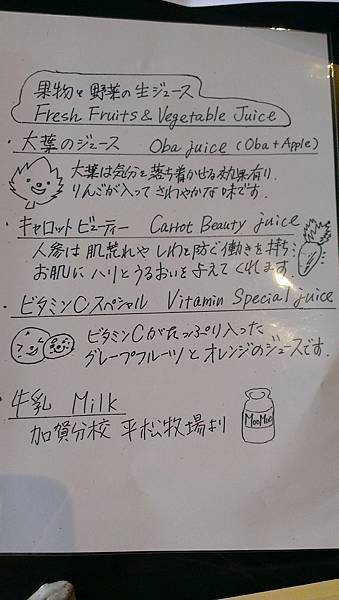 果物と野菜の生ジュース
Fresh Fruits & Vegetable Juice
・大葉のジュース Oba juice (Oba + Apple)
大葉は気分を落ち着かせる効果有り.
りんごが入ってさわやかな味です.
・キャロットビューティー Carrot Beauty juice
人参は肌荒れやしわを防ぐ働きを持ち
お肌にハリとうるおいを与えてくれます
・ビタミンCスペシャル Vitamin Special juice
ビタミンCがたっぷり入った
グレープフルーツとオレンジのジュースです.
・牛乳 Milk
加賀分校 平松牧場より
MooMoo